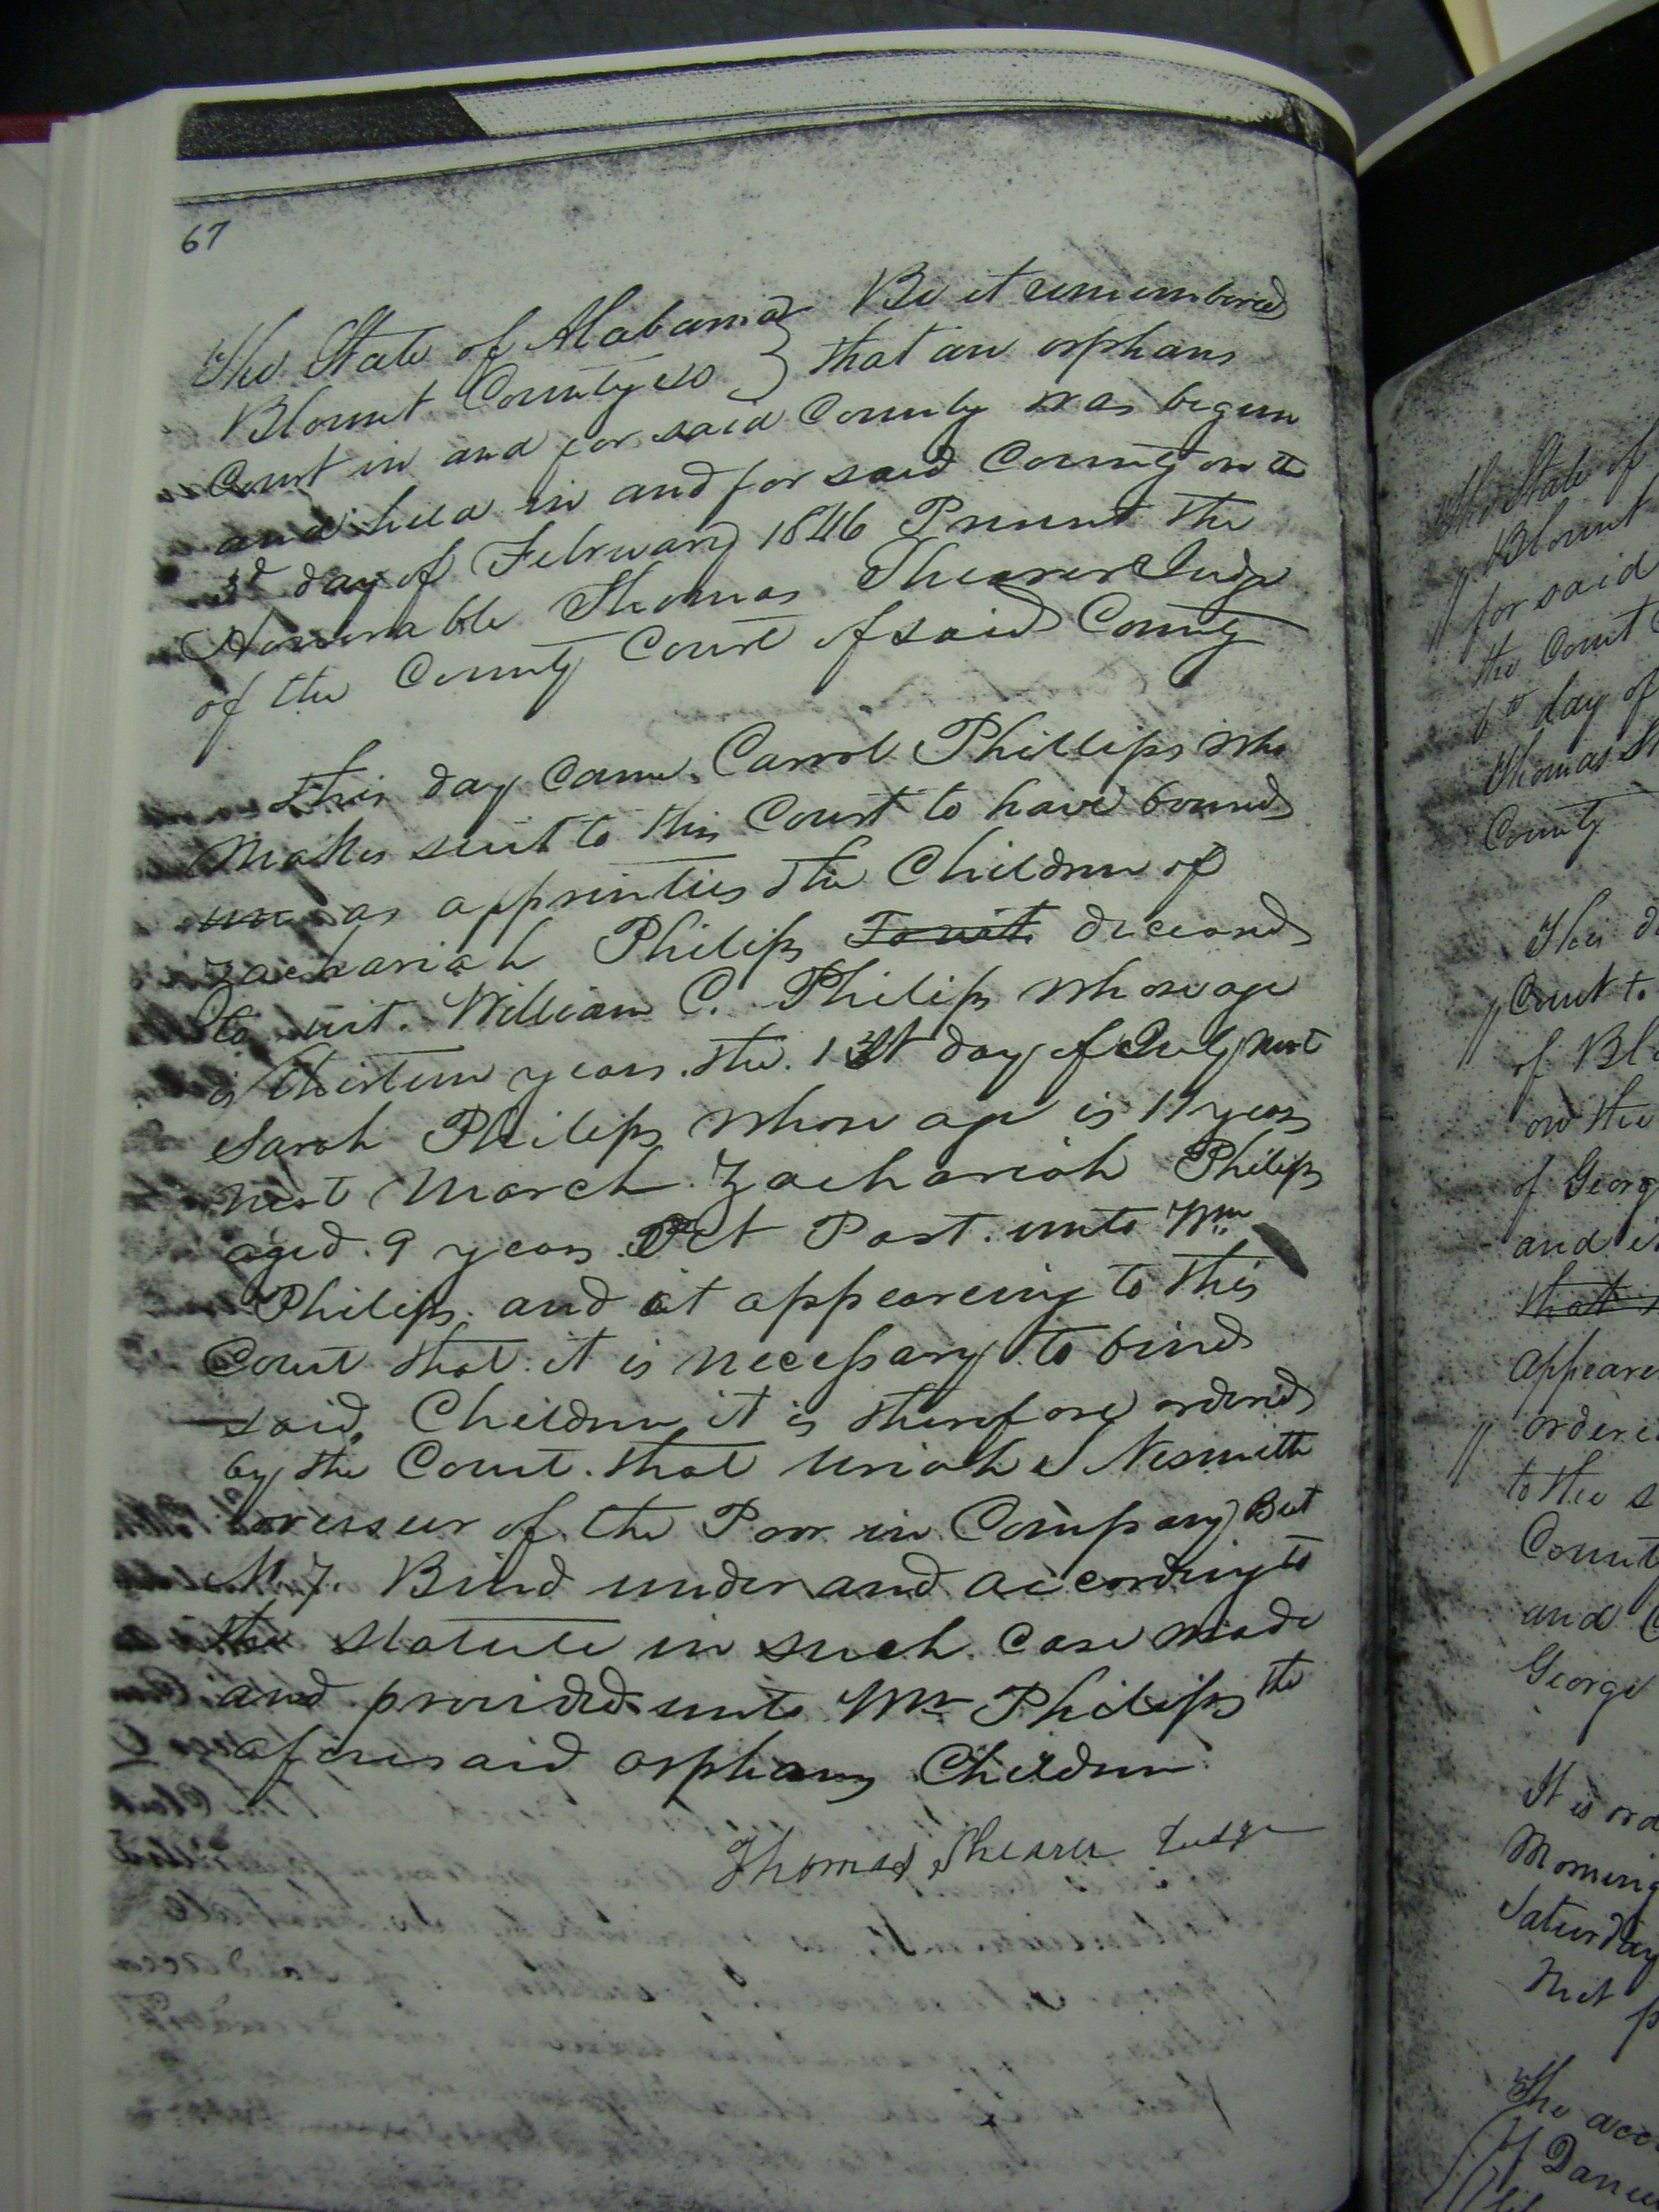 67
The State of Alabama } Be it remembered
Blount County ss } that an orphans
Court in and for said County was begun
and held in and for said County on the
3d day of February 1846 Present the
Honorable Thomas Shearer Judge
of the County Court of said County
This day Came Carrol Phillips who
Makes suit to this Court to have bound
as apprentices the Children of
Zachariah Philips To wit deceased
to wit. William C. Philips whose age
is thirteen years the 1st day of July next
Sarah Philips whose age is 11 years
next March Zachariah Philips
aged 9 years Oct Past. unto Wm
Philips and it appeareing to this
Court that it is necessary to bind
said Children it is therefore ordered
by the Court that Uriah S Nesmith
overseer of the Poor in Company Beat
No 7. Bind under and according to
the statute in such case made
and provided unto Wm Philips the
aforesaid orphans Children
Thomas Shearer Judge
The State of
Blount
for said
the Court
6th day of
Thomas Sh
County
This d
Court to
of Bl
on the
of Georg
and it
that
appeare
ordere
to the s
County
and
George
It is ord
Morning
Saturday
next p
The acc
of Dan